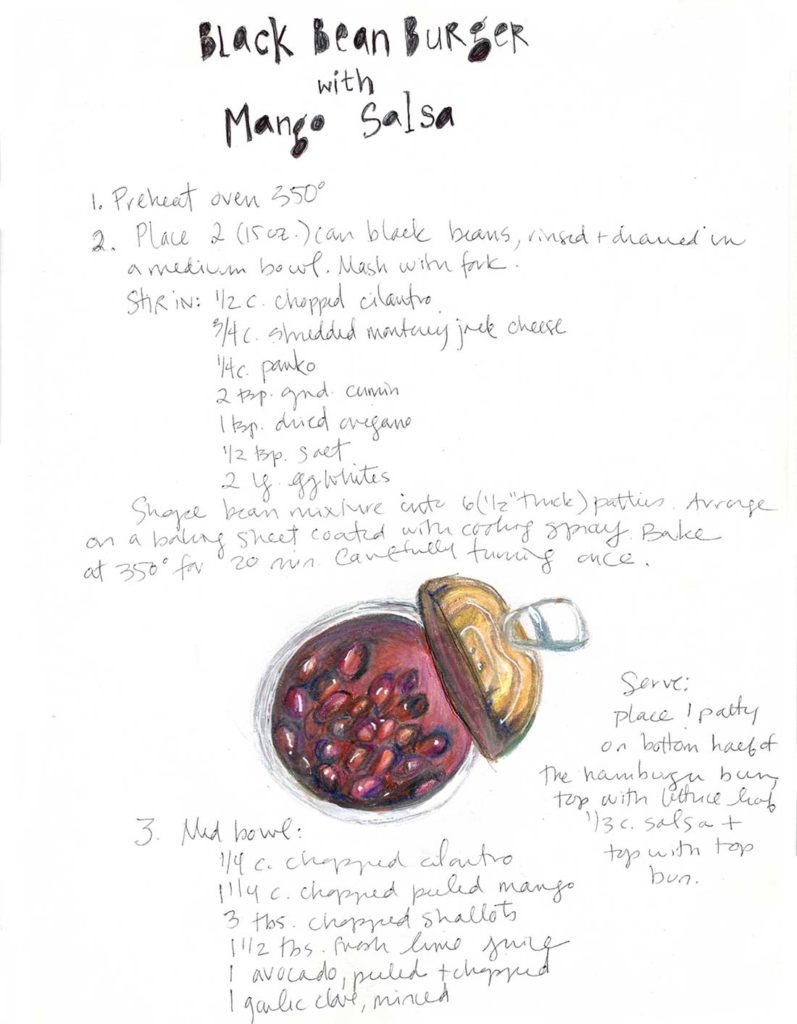 Black Bean Burger
with
Mango Salsa
1. Preheat oven 350°
2. Place 2 (15 oz.) can black beans, rinsed + drained in
a medium bowl. Mash with fork.
Stir in: 1/2 c. chopped cilantro
3/4 c. shredded monterey jack cheese
1/4 c. panko
2 tsp. grnd. cumin
1 tsp. dried oregano
1/2 tsp. salt
2 lg. egg whites
Shape bean mixture into 6 (1/2" thick) patties. Arrange
on a baking sheet coated with cooking spray. Bake
at 350° for 20 min. Carefully turning once.
Serve:
place 1 patty
on bottom half of
the hamburger bun,
top with lettuce leaf
1/3 c. salsa +
top with top
bun.
3. Med bowl:
1/4 c. chopped cilantro
1 1/4 c. chopped peeled mango
3 tbs. chopped shallots
1 1/2 tbs. fresh lime juice
1 avocado, peeled + chopped
1 garlic clove, minced